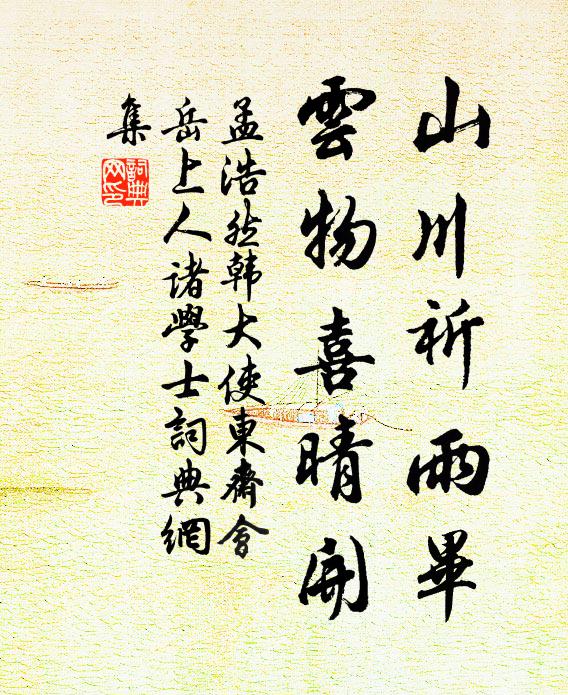 山川祈雨畢
雲物喜晴開
孟浩然韩大使東齋會
岳上人诸學士詞典網
集
詞典網印